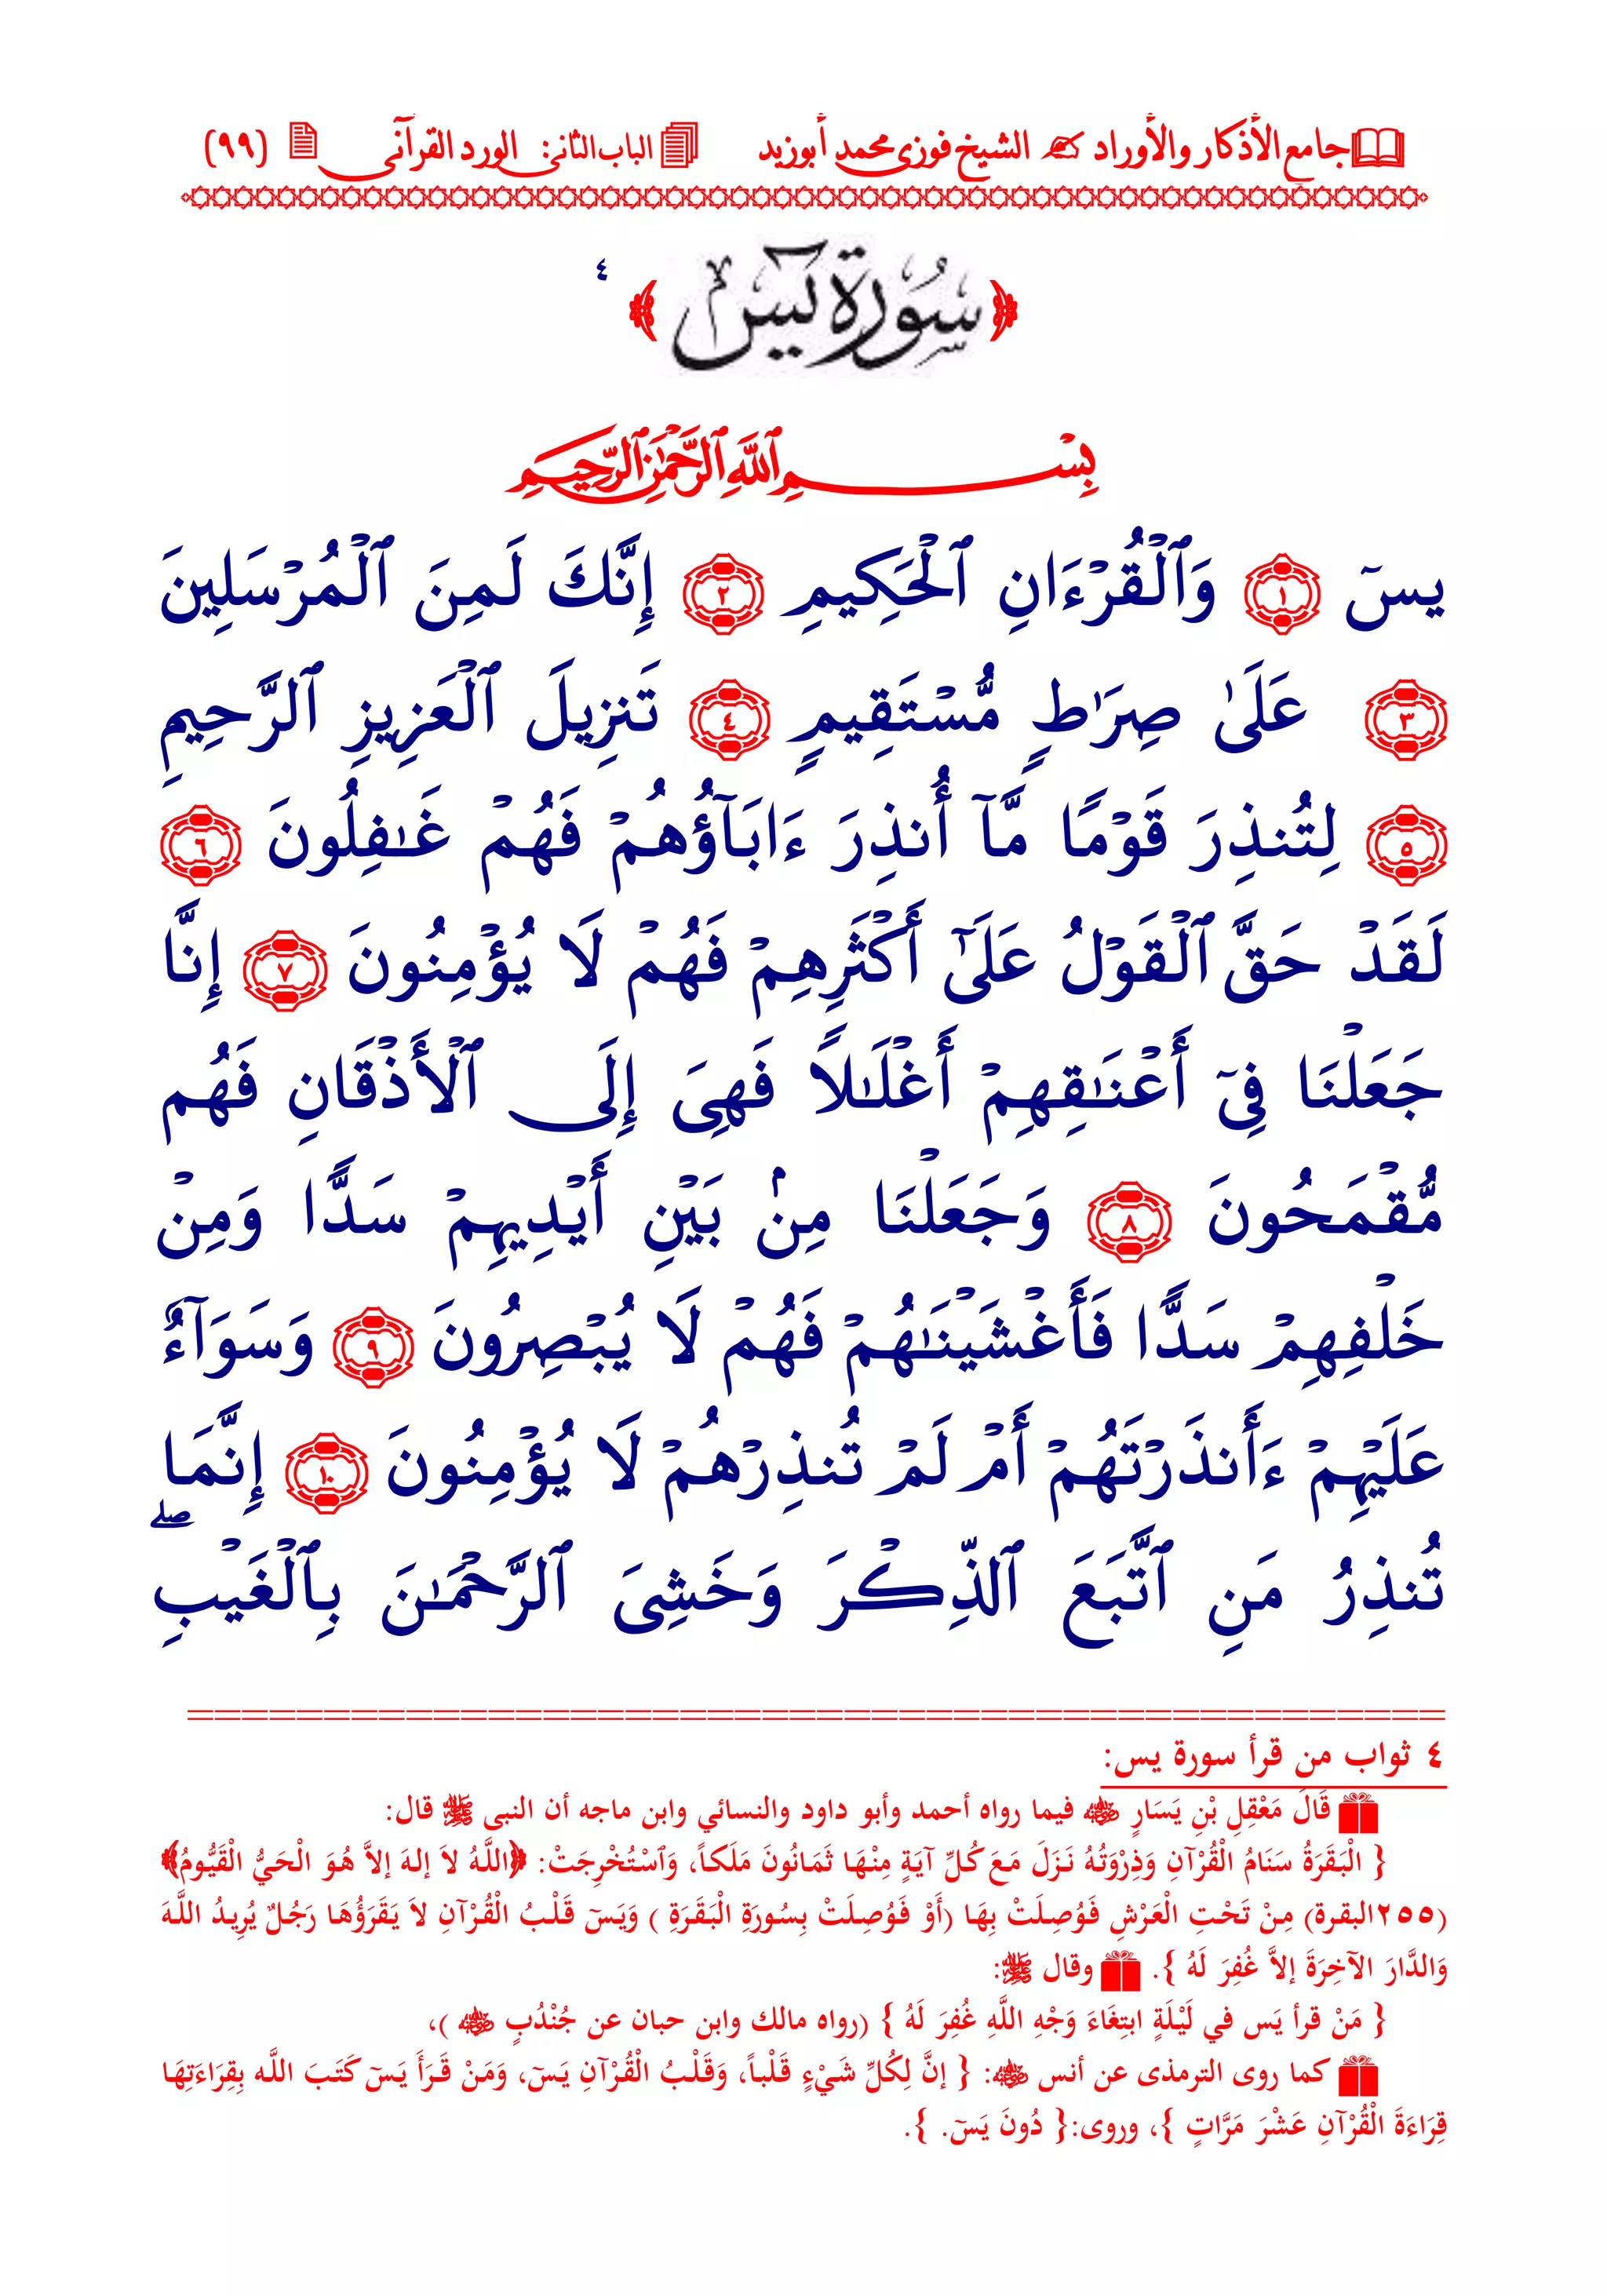 جامع الأذكار والأوراد الشيخ فوزى محمد أبوزيد الباب الثانى: الورد القرآنى (٩٩)
﴿ سُورَةُ يسٓ ﴾ ٤
بِسْمِ ٱللَّهِ ٱلرَّحْمَٰنِ ٱلرَّحِيمِ
يسٓ ١ وَٱلْقُرْءَانِ ٱلْحَكِيمِ ٢ إِنَّكَ لَمِنَ ٱلْمُرْسَلِينَ
٣ عَلَىٰ صِرَٰطٍ مُّسْتَقِيمٍ ٤ تَنزِيلَ ٱلْعَزِيزِ ٱلرَّحِيمِ
٥ لِتُنذِرَ قَوْمًا مَّآ أُنذِرَ ءَابَآؤُهُمْ فَهُمْ غَٰفِلُونَ ٦
لَقَدْ حَقَّ ٱلْقَوْلُ عَلَىٰٓ أَكْثَرِهِمْ فَهُمْ لَا يُؤْمِنُونَ ٧ إِنَّا
جَعَلْنَا فِىٓ أَعْنَٰقِهِمْ أَغْلَٰلًا فَهِىَ إِلَى ٱلْأَذْقَانِ فَهُم
مُّقْمَحُونَ ٨ وَجَعَلْنَا مِنۢ بَيْنِ أَيْدِيهِمْ سَدًّا وَمِنْ
خَلْفِهِمْ سَدًّا فَأَغْشَيْنَٰهُمْ فَهُمْ لَا يُبْصِرُونَ ٩ وَسَوَآءٌ
عَلَيْهِمْ ءَأَنذَرْتَهُمْ أَمْ لَمْ تُنذِرْهُمْ لَا يُؤْمِنُونَ ١٠ إِنَّمَا
تُنذِرُ مَنِ ٱتَّبَعَ ٱلذِّكْرَ وَخَشِىَ ٱلرَّحْمَٰنَ بِٱلْغَيْبِ ۖ
٤ ثواب من قرأ سورة يس:
قَالَ مَعْقِلِ بْنِ يَسَارٍ ﷺ فيما رواه أحمد وأبو داود والنسائي وابن ماجه أن النبى ﷺ قال:
{ الْبَقَرَةُ سَنَامُ الْقُرْآنِ وَذِرْوَتُهُ نَـزَلَ مَـعَ كُـلِّ آيَـةٍ مِنْـهَا ثَمَـانُونَ مَلَكـاً، وَٱسْتُخْرِجَتْ: ﴿اللَّـهُ لَا إلهَ إلَّا هُوَ الْحَيُّ الْقَيُّومُ﴾
(٢٥٥البقـرة) مِـنْ تَـحْـتِ الْعَرْشِ فَوُصِـلَتْ بِهَا (أَوْ فَـوُصِـلَتْ بِسُـورَةِ الْبَـقَـرَةِ ) وَيَـسٓ قَـلْـبُ الْقُـرْآنِ لَا يَـقَرَؤُهَـا رَجُـلٌ يُرِيـدُ اللَّـهَ
وَالدَّارَ الآخِرَةَ إلَّا غُفِرَ لَهُ }. وقال ﷺ:
{ مَنْ قرأ يَس في لَيْلَةٍ ابتِغَاءَ وَجْهِ اللَّهِ غُفِرَ لَهُ } (رواه مالك وابن حبان عن جُنْدُبٍ ﷺ)،
كما روى الترمذى عن أنس ﷺ: { إنَّ لِكُلِّ شَـيْءٍ قَـلْـبـاً، وَقَـلْـبُ الْقُـرْآنِ يَـسٓ، وَمَـنْ قَـرَأَ يَـسٓ كَتَـبَ اللَّـه بِقِرَاءَتِهَـا
قِرَاءَةَ الْقُرْآنِ عَشْرَ مَرَّاتٍ }، وروى:{ دُونَ يَسٓ. }.